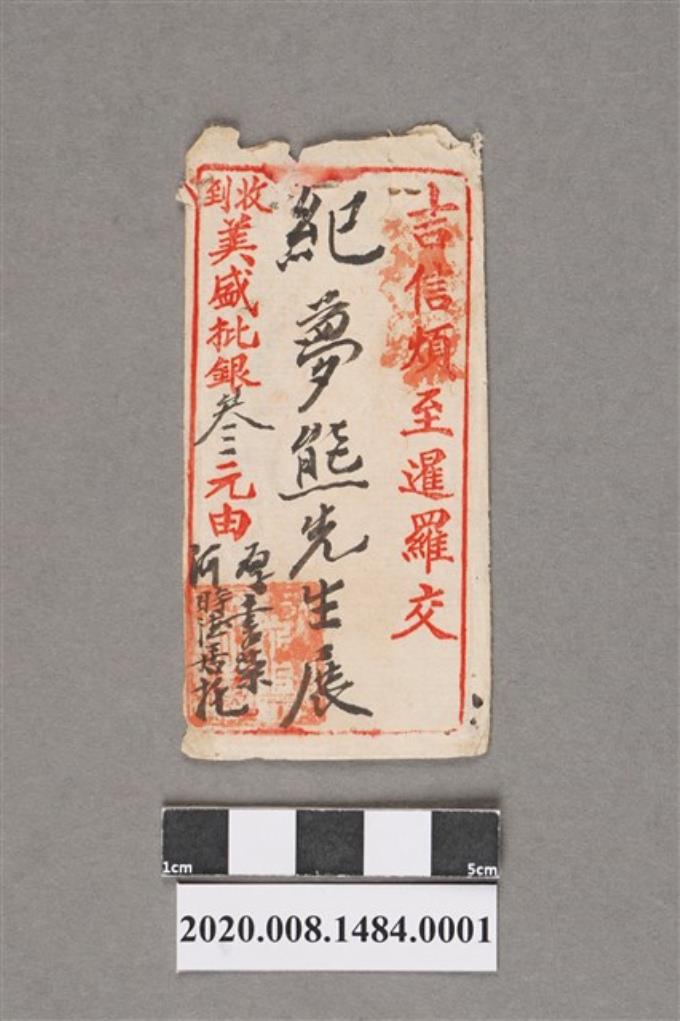 吉信煩至暹羅交
紀夢熊先生展
收到美盛批銀叁元由
1cm
5cm
2020.008.1484.0001